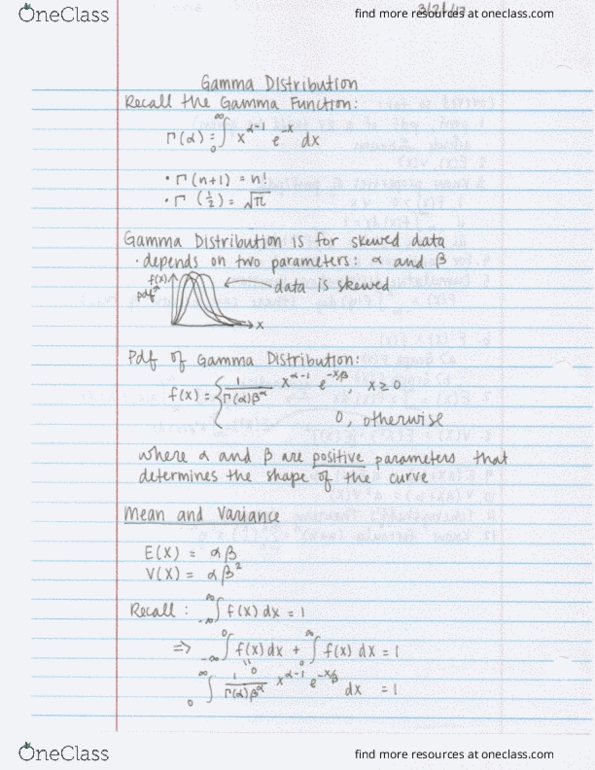 OneClass
find more resources at oneclass.com
Gamma Distribution
Recall the Gamma Function:
Γ(α) = ∫₀^∞ x^(α-1) e^(-x) dx
· Γ(n+1) = n!
· Γ(½) = √π
Gamma Distribution is for skewed data
· depends on two parameters: α and β
f(x)
pdf
data is skewed
x
Pdf of Gamma Distribution:
f(x) = { 1/(Γ(α)β^α) x^(α-1) e^(-x/β), x ≥ 0
0, otherwise
where α and β are positive parameters that
determines the shape of the curve
Mean and Variance
E(X) = αβ
V(X) = αβ²
Recall: ∫_-∞^∞ f(x) dx = 1
⇒ ∫_-∞^0 f(x) dx + ∫_0^∞ f(x) dx = 1
"
0
∫_0^∞ 1/(Γ(α)β^α) x^(α-1) e^(-x/β) dx = 1
OneClass
find more resources at oneclass.com